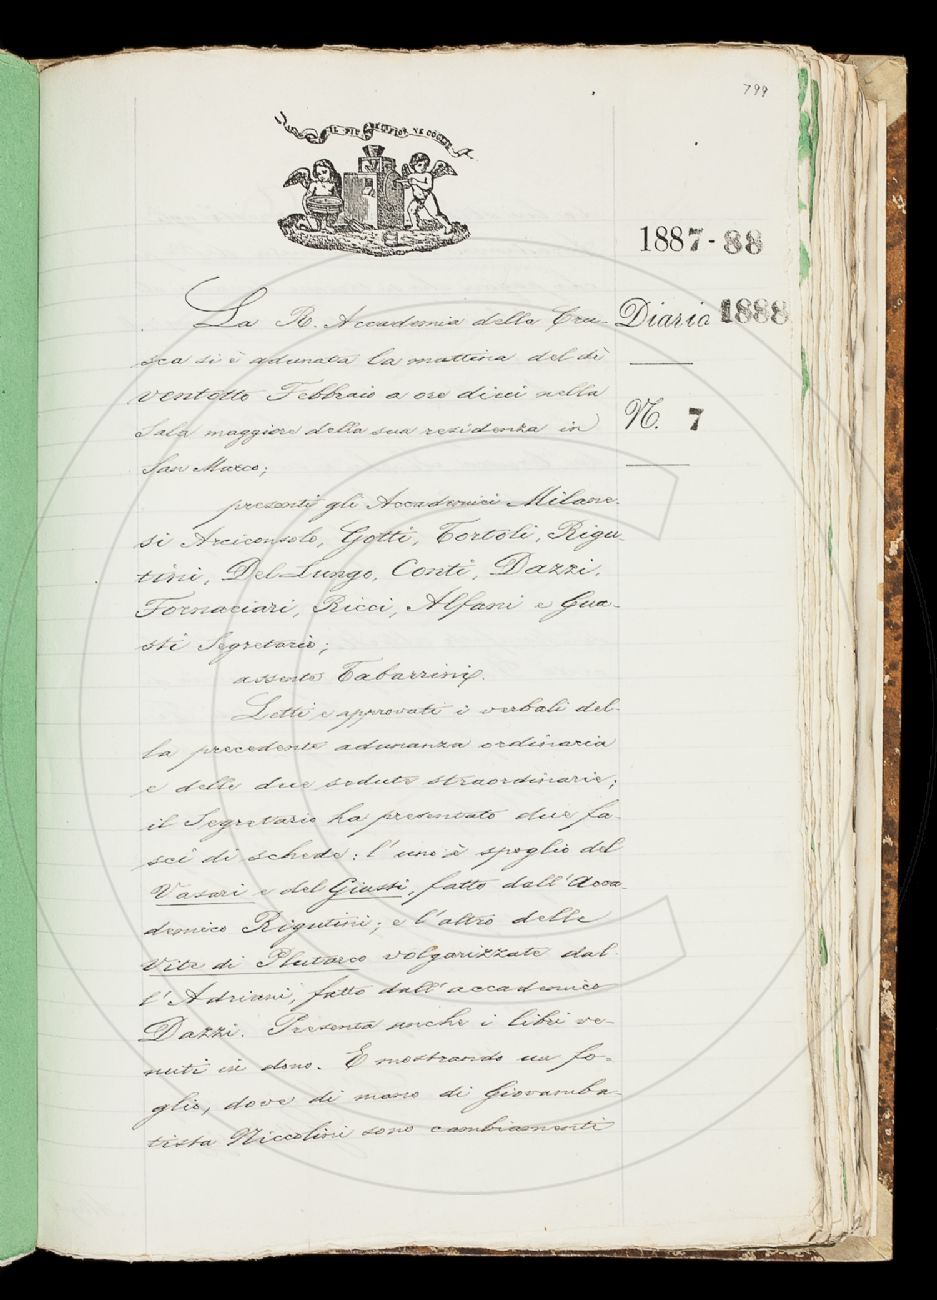 799
IL PIÙ BEL FIOR NE COGLIE
1887-88
Diario 1888
N. 7
La R. Accademia della Cru-
sca si è adunata la mattina del dì
ventotto Febbraio a ore dieci nella
Sala maggiore della sua residenza in
San Marco;
presenti gli Accademici Milane-
si Arciconsolo, Gotti, Tortoli, Rigu-
tini, Del Lungo, Conti, Dazzi,
Fornaciari, Ricci, Alfani e Gua-
sti Segretario;
assente Tabarrini.
Letti e approvati i verbali del-
la precedente adunanza ordinaria
e delle due sedute straordinarie;
il Segretario ha presentato due fa-
sci di schede: l'uno è spoglio del
Vasari e del Giusti, fatto dall'Acca-
demico Rigutini; e l'altro delle
Vite di Plutarco volgarizzate dal-
l'Adriani, fatto dall'accademico
Dazzi. Presenta anche i libri ve-
nuti in dono. E mostrando un fo-
glio, dove di mano di Giovamba-
tista Niccolini sono cambiamenti